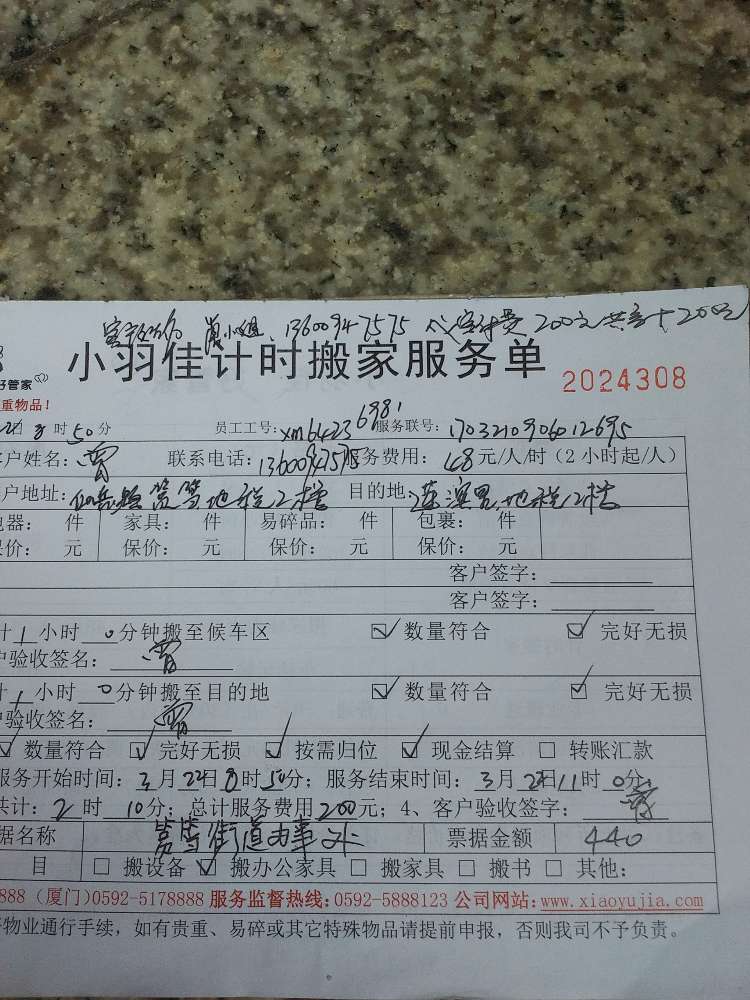 小姐 13600947575 200元 共 200元
小羽佳计时搬家服务单
好管家 2024308
重物品！
时50分 员工工号：xm6423 6981 服务联号：1703210906012695
户姓名：曾 联系电话：13600947575 服务费用：48元/人/时（2小时起/人）
户地址：筼筜地税12楼 目的地：地税12楼
电器： 件 家具： 件 易碎品： 件 包裹： 件
保价： 元 保价： 元 保价： 元 保价： 元
客户签字：
客户签字：
计1小时0分钟搬至候车区 ☑数量符合 ☑完好无损
户验收签名：曾
计1小时0分钟搬至目的地 ☑数量符合 ☑完好无损
户验收签名：曾
☑数量符合 ☑完好无损 ☑按需归位 ☑现金结算 □转账汇款
服务开始时间：3月22日8时50分；服务结束时间：3月22日11时0分；
共计：2时10分；总计服务费用200元；4、客户验收签字：曾
据名称 筼筜街道办事处 票据金额 440
目 □搬设备 ☑搬办公家具 □搬家具 □搬书 □其他：
888（厦门）0592-5178888 服务监督热线：0592-5888123 公司网站：www.xiaoyujia.com
物业通行手续，如有贵重、易碎或其它特殊物品请提前申报，否则我司不予负责。